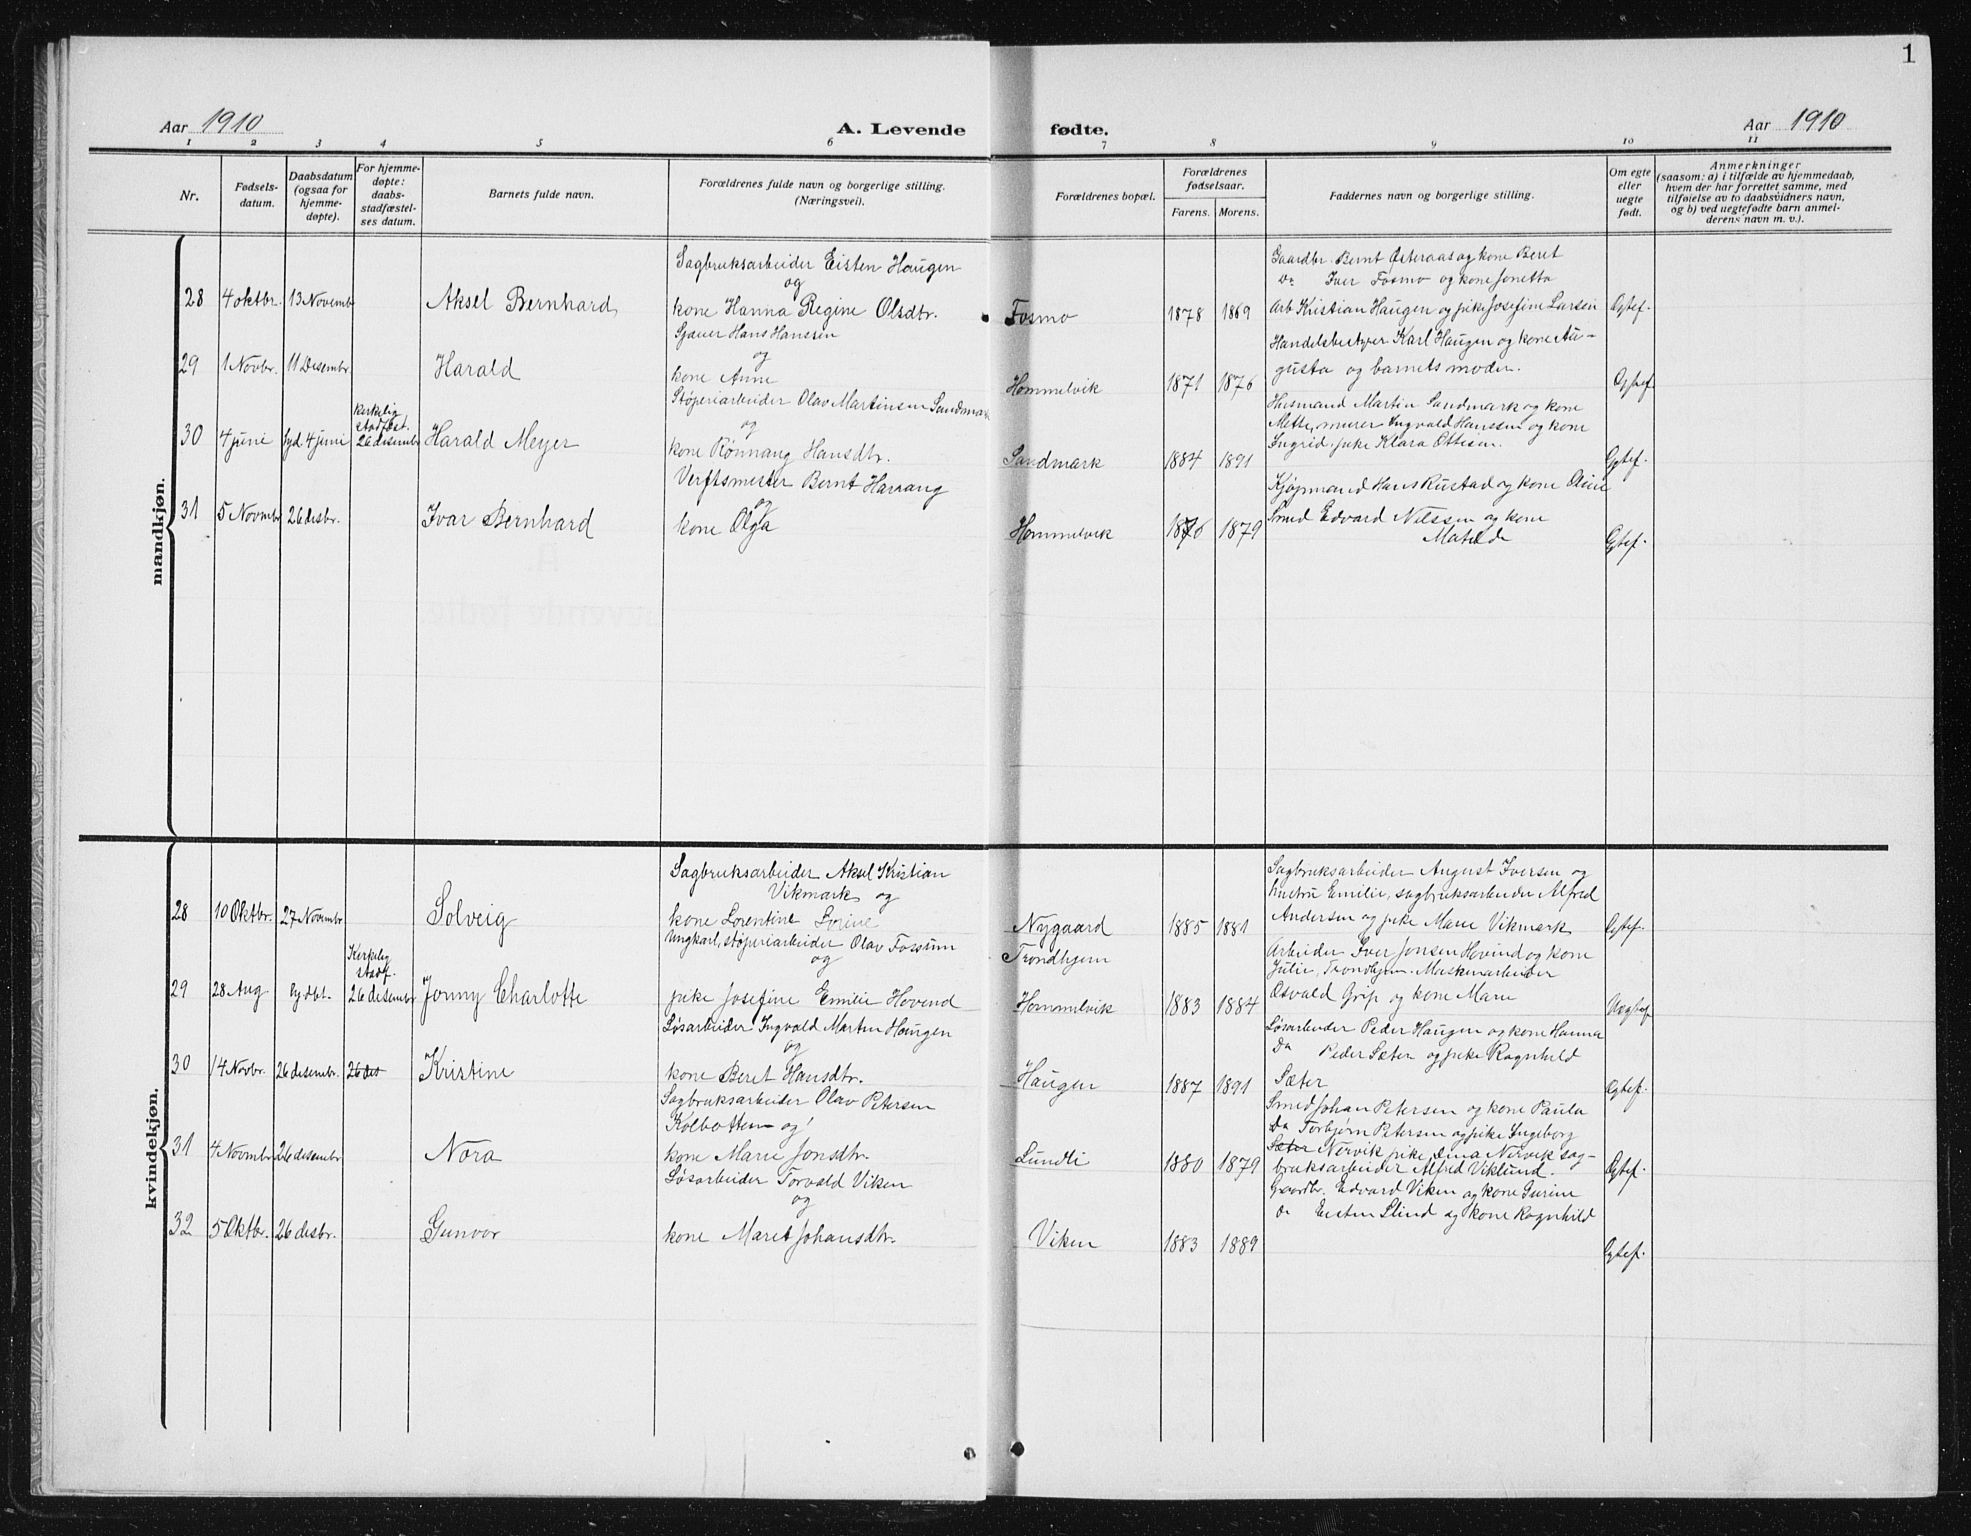 1
Aar 1910
A. Levende fødte.
Aar 1910
1 2 3 4 5 6 7 8 9 10 11
Nr.
Fødsels-
datum.
Daabsdatum
(ogsaa for
hjemme-
døpte).
For hjemme-
døpte:
daabs-
stadfæstel-
ses datum.
Barnets fulde navn.
Forældrenes fulde navn og borgerlige stilling.
(Næringsvei).
Forældrenes bopæl.
Forældrenes
fødselsaar.
Farens. Morens.
Faddernes navn og borgerlige stilling.
Om egte
eller
uegte
født.
Anmerkninger
(saasom: a) i tilfælde av hjemmedaab,
hvem der har forrettet samme, med
tilføielse av to daabsvidners navn,
og b) ved uegtefødte barn anmel-
derens navn m. v.).
mandkjøn.
Sagbruksarbeider Eisten Haugen
og
28 4 oktbr. 13 Novembr Aksel Bernhard kone Hanna Regine Olsdtr. Fosmo 1878 1869
Gaardbr. Bernt Østeraas og kone Beret
Do Iver Fosmo og kone Jonetta
Arb Kristian Haugen og pike Josefine Larsen Egtef.
Hans Hanssen
og
29 1 Novbr. 11 Desembr. Harald kone Anne Hommelvik 1871 1876
Handelsbestyrer Karl Haugen og kone Au-
gusta og barnets moder. Egtef
Støperiarbeider Olav Martinsen Sandmark
og
30 4 juni hjd 4 juni
kirkelig
stadfest.
26 desembr Harald Meyer kone Rønnaug Hansdtr. Sandmark 1884 1891
Husmand Martin Sandmark og kone
Mette, murer Ingvald Hanssen og kone
Ingrid. pike Klara Ottesen. Egtef.
Verftsmester Bernt Harrang
og
31 5 Novmbr 26 desbr. Ivar Bernhard kone Olga Hommelvik 1876 1879
Kjøpmand Hans Rustad og kone Oline
Smed Edvard Nilssen og kone
Matilde Egtef.
kvindekjøn.
Sagbruksarbeider Aksel Kristian
Vikmark og
28 10 Oktbr. 27 Novembr Solveig kone Lorentine Sørine Nygaard 1885 1881
Sagbruksarbeider August Iversen og
hustru Emilie, sagbruksarbeider Alfred
Andersen og pike Marie Vikmark Egtef.
Ungkarl, støperiarbeider Olav Fossum Trondhjem
og
29 28 Aug hjdbt.
Kirkelig
stadf.
26 desembr Jonny Charlotte pike Josefine Emilie Hovend Hommelvik 1883 1884
Arbeider Iver Jonsen Hovind og kone
Julie, Trondhjem. Maskinarbeider
Osvald Grip og kone Marie Uegtef
Løsarbeider Ingvald Martin Haugen
og
30 14 Novbr. 26 desembr. 26 des Kristine kone Beret Hansdtr. Haugen 1887 1891
Løsarbeider Peder Haugen og kone Hanna
Do Peder Sæter og pike Ragnhild
Sæter Egtef.
Sagbruksarbeider Olav Petersen
Kolbotten og
31 4 Novmbr 26 desembr Nora kone Marie Jonsdtr. Lundli 1880 1879
Smed Johan Petersen og kone Paula
Do Torbjørn Petersen og pike Ingeborg
Sæter Nervik pike Dina Nervik sag-
bruksarbeider Alfred Viklund. Egtef.
Løsarbeider Torvald Viken
og
32 5 Oktbr. 26 desbr. Gunvor kone Maret Johansdtr. Viken 1883 1889
Gaardbr. Edvard Viken og kone Gurine
Do Eisten Slind og kone Ragnhild
Egtef.